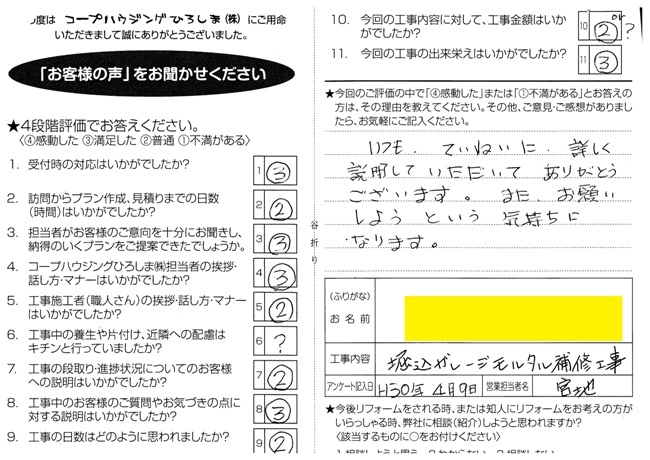 度は コープハウジングひろしま(株) にご用命
いただきまして誠にありがとうございました。
「お客様の声」をお聞かせください
★4段階評価でお答えください。
〈④感動した ③満足した ②普通 ①不満がある〉
1. 受付時の対応はいかがでしたか? 1 ③
2. 訪問からプラン作成、見積りまでの日数
(時間)はいかがでしたか? 2 ②
3. 担当者がお客様のご意向を十分にお聞きし、
納得のいくプランをご提案できたでしょうか。 3 ③
4. コープハウジングひろしま㈱担当者の挨拶・
話し方・マナーはいかがでしたか? 4 ③
5. 工事施工者(職人さん)の挨拶・話し方・マナー
はいかがでしたか? 5 ②
6. 工事中の養生や片付け、近隣への配慮は
キチンと行っていましたか? 6 ?
7. 工事の段取り・進捗状況についてのお客様
への説明はいかがでしたか? 7 ②
8. 工事中のお客様のご質問やお気づきの点に
対する説明はいかがでしたか? 8 ③
9. 工事の日数はどのように思われましたか? 9 ②
谷折り
10. 今回の工事内容に対して、工事金額はいか
がでしたか? 10 ② or ?
11. 今回の工事の出来栄えはいかがでしたか? 11 ③
★今回のご評価の中で「④感動した」または「①不満がある」とお答えの
方は、その理由を教えてください。その他、ご意見・ご感想がありまし
たら、お気軽にご記入ください。
いつも、ていねいに、詳しく
説明していただいて ありがとう
ございます。また、お願い
しよう という 気持ちに
なります。
(ふりがな)
お名前
工事内容 堀込ガレージモルタル補修工事
アンケート記入日 H30年 4月9日 営業担当者名 宮地
★今後リフォームをされる時、または知人にリフォームをお考えの方が
いらっしゃる時、弊社に相談(紹介)しようと思われますか?
〈該当するものに○をお付けください〉